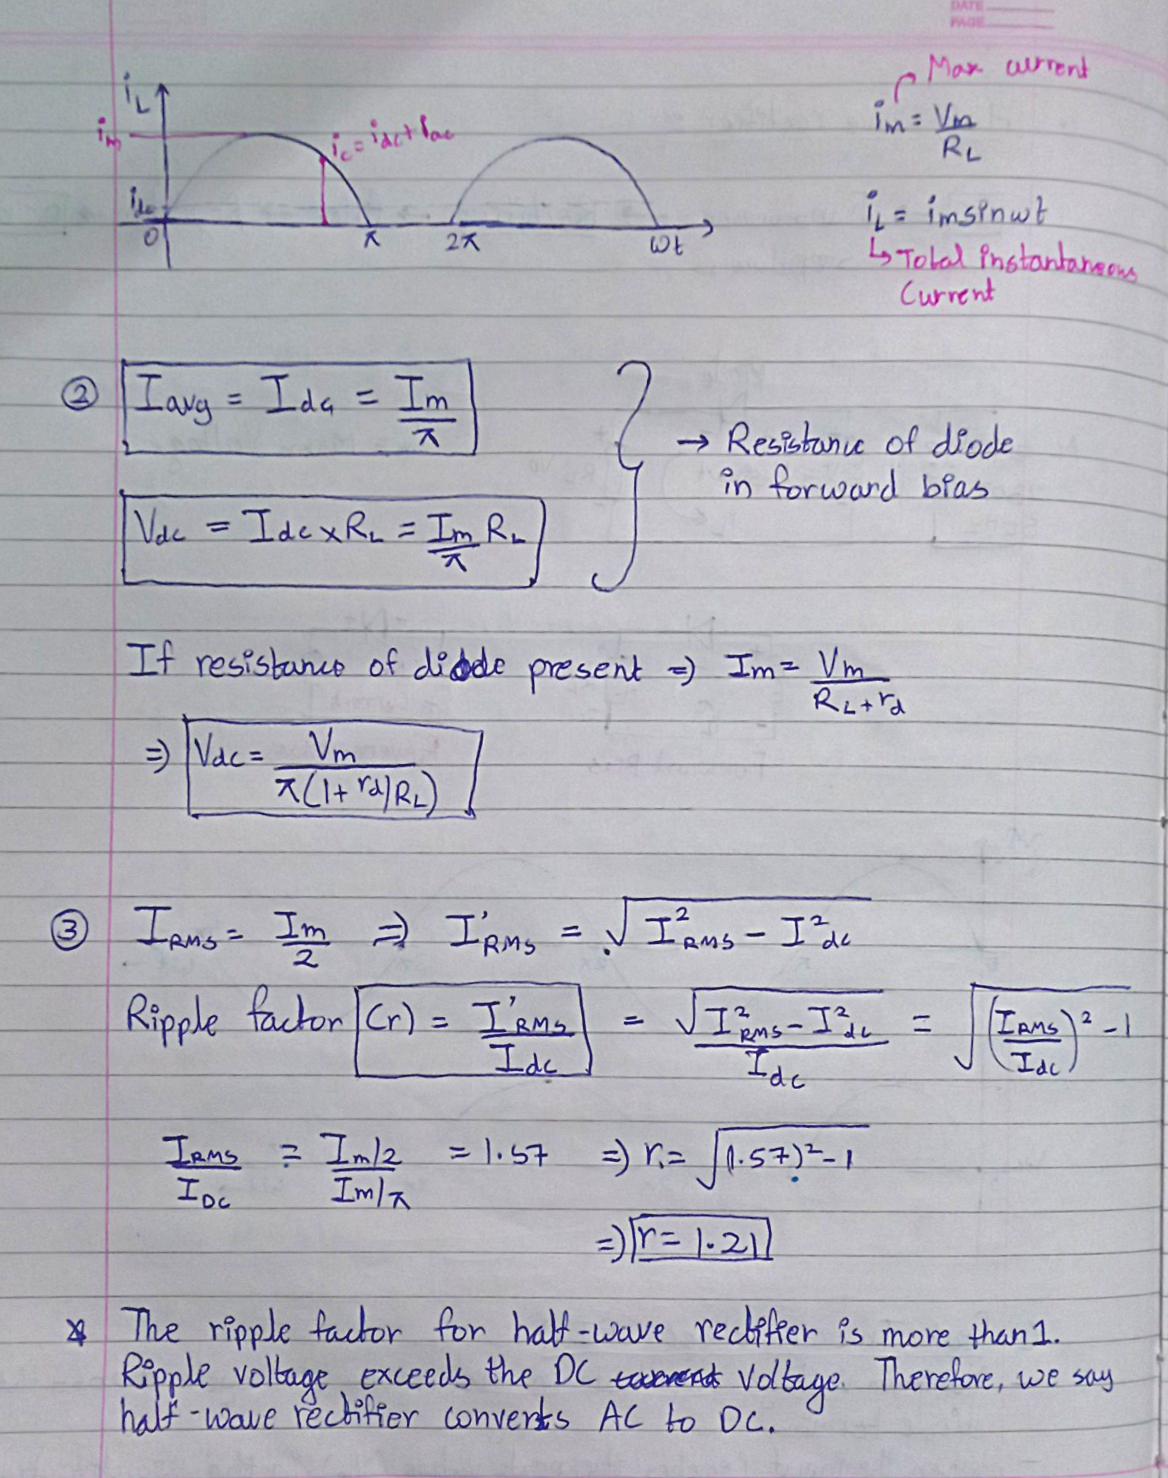 DATE
PAGE
Max current
iL
im
ic = idc + iac
im = Vm/RL
idc
0 π 2π ωt
iL = imsinωt
↳ Total instantaneous
Current
② Iavg = Idc = Im/π
→ Resistance of diode
in forward bias
Vdc = Idc × RL = Im/π RL
If resistance of diode present ⇒ Im = Vm/RL + rd
⇒ Vdc = Vm/π(1 + rd/RL)
③ IRMS = Im/2 ⇒ I'RMS = √I²RMS - I²dc
Ripple factor (r) = I'RMS/Idc = √I²RMS - I²dc/Idc = √(IRMS/Idc)² - 1
IRMS/IDC = Im/2/Im/π = 1.57 ⇒ r = √(1.57)² - 1
⇒ r = 1.21
* The ripple factor for half-wave rectifier is more than 1.
Ripple voltage exceeds the DC voltage. Therefore, we say
half-wave rectifier converts AC to DC.